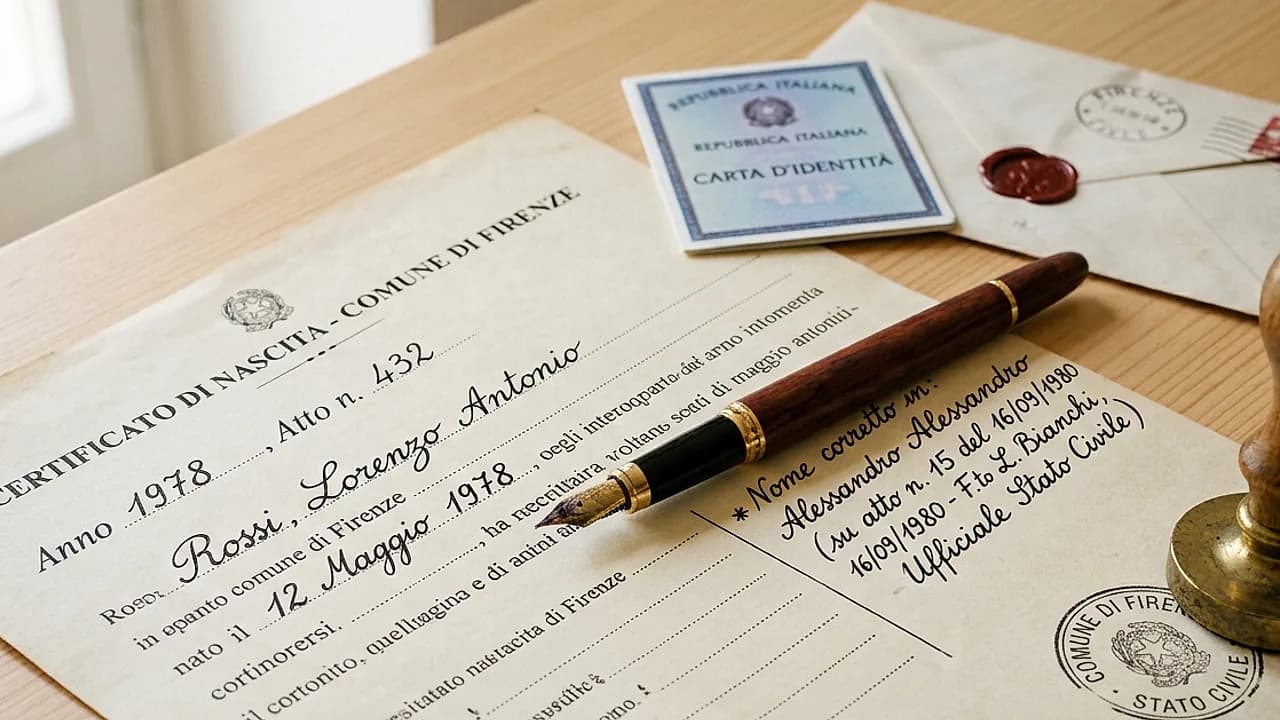 REPUBBLICA ITALIANA
REPUBBLICA ITALIANA
CARTA D'IDENTITÀ
FIRENZE
CERTIFICATO DI NASCITA - COMUNE DI FIRENZE
Anno 1978, Atto n. 432
Rossi, Lorenzo Antonio
in opanto comune di Firenze
nato il 12 Maggio 1978, oegli interoparto due arno inlomenta
cortinorersi.
, ha
voltano scati di maggio
il cortonito, quelluagina e di
di Firenze
* Nome corretto in:
Alessandro Alessandro
(su atto n. 15 del 16/09/1980
16/09/1980 - F.to L. Bianchi,
Ufficiale Stato Civile)
COMUNE DI FIREN
STATO CIVILE